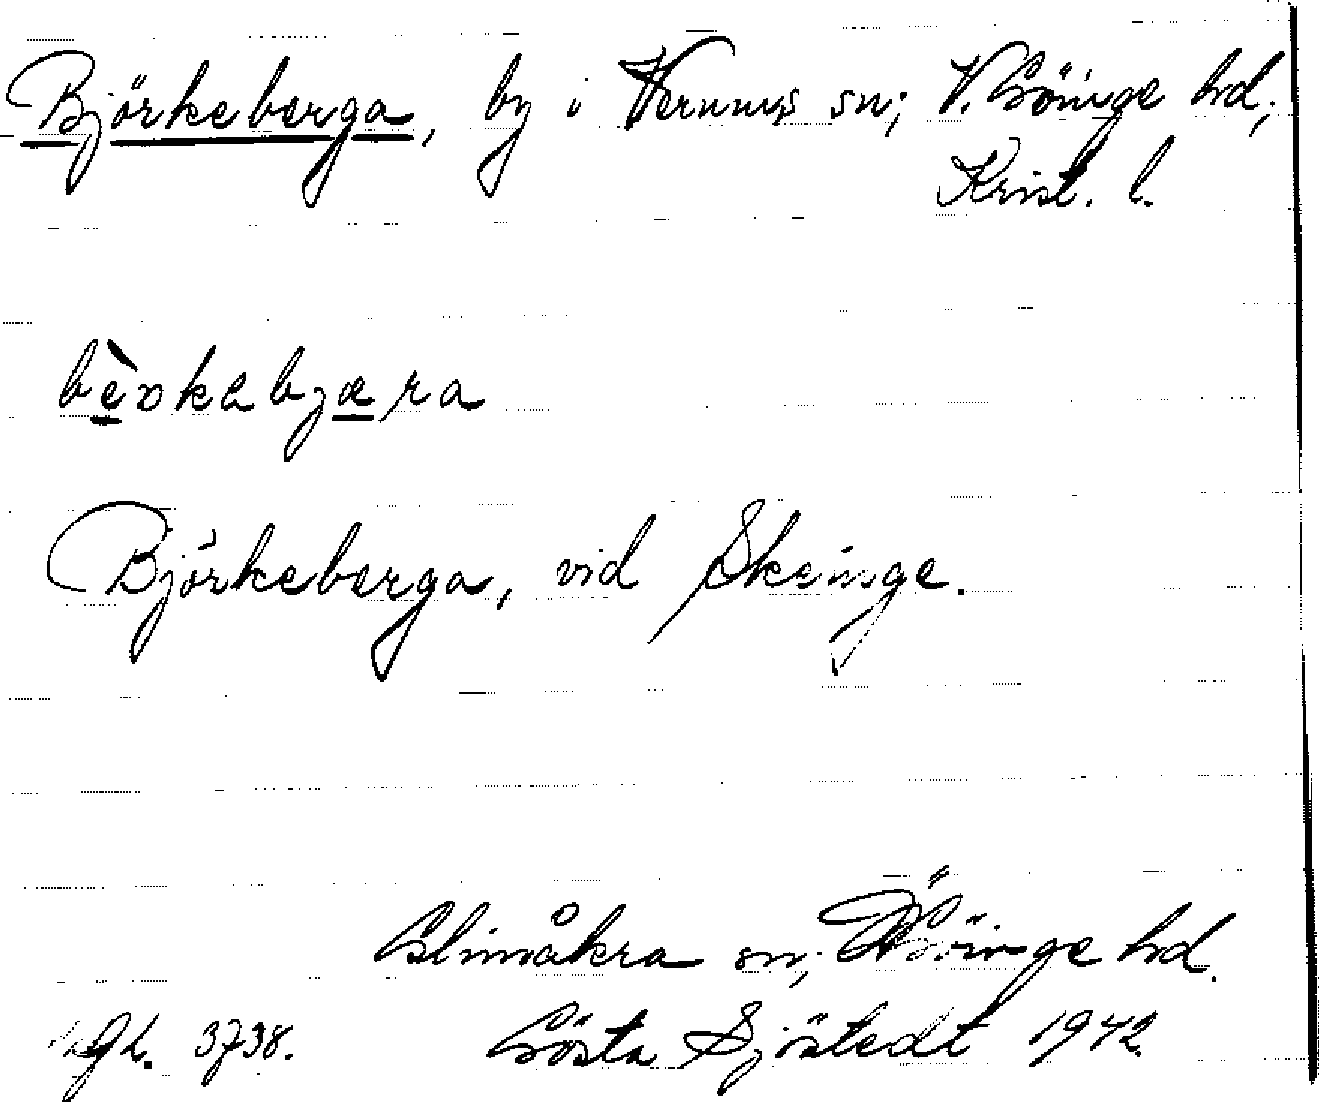 Björkeberga, by i Verums sn; V. Göinge hd;
Krist. l.
Björkeberga, vid Skeinge.
Glimåkra sn, Ö Göinge hd.
3738. Gösta Sjöstedt 1942.